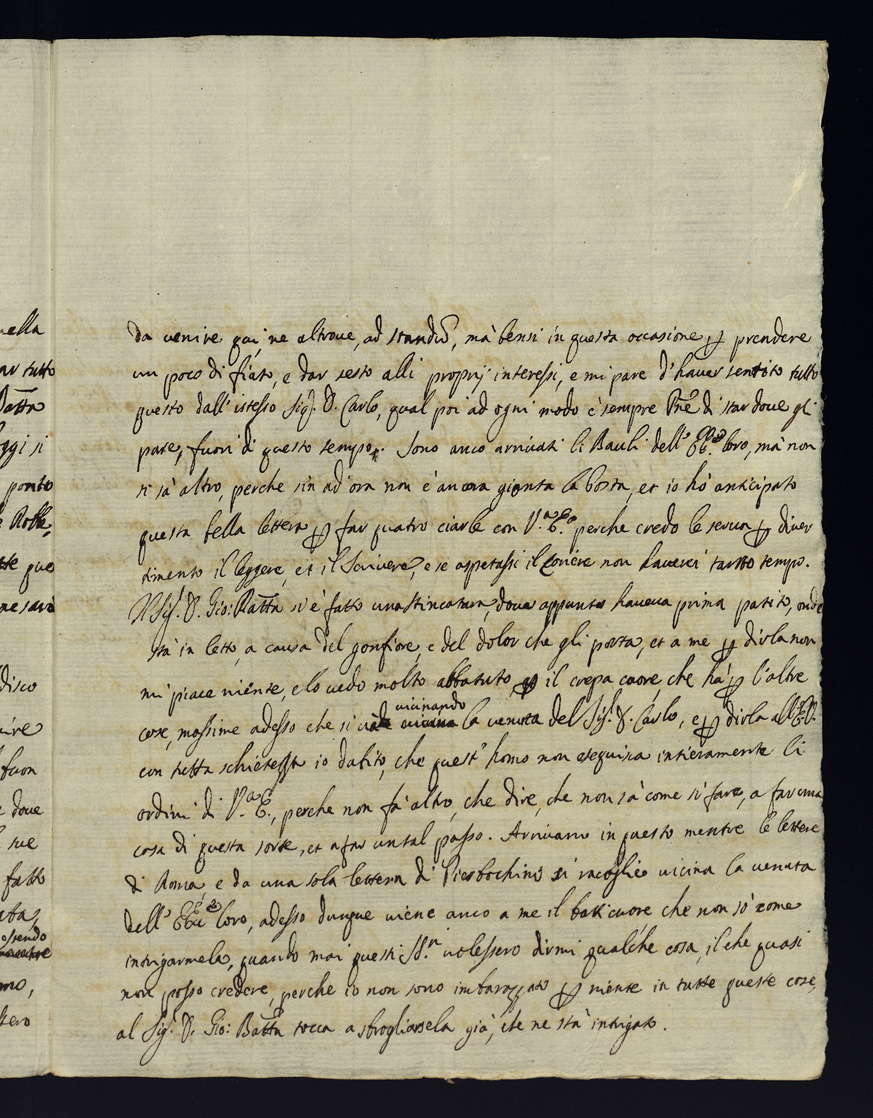 da venire qui, ne altrove, ad standũ, mà bensi in questa occasione ꝑ prendere
un poco di fiato, e dar sesto alli proprij interessi, e mi pare d'haver sentito tutto
questo dall'istesso Sig.r D. Carlo, qual poi ad ogni modo è sempre Pne di star dove gli
pare, fuori di questo tempo. Sono anco arrivati li Bauli dell' EE.e loro, mà non
si sà altro, perche sin ad'ora non è ancora gionta la Posta, et io hò anticipato
questa bella lettera ꝑ far quatro ciarle con V.a E.a perche credo le serva ꝑ diver
timento il leggere, et il Scrivere, e se aspetassi il Coriere non haverei tanto tempo.
Il Sig.r D. Gio: Batta si è fatto una stincatura, dove appunto haveva prima patito, onde
stà in letto, a causa del gonfiore, e del dolor che gli porta, et a me ꝑ dirla non
mi piace niente, e lo vedo molto abbatuto, ꝑ il crepa cuore, che hà ꝑ l'altre
cose, massime adesso che si và avicinando la venuta del Sig.r D. Carlo, e ꝑ dirla all'E.V.
con tutta schietezza io dubito, che quest'homo non eseguirà intieramente li
ordini di V.a E., perche non fà altro, che dire, che non sà come si fare, a far una
cosa di questa sorte, et a far un tal passo. Arrivano in questo mentre le lettere
di Roma, e da una sola lettera di Pierbochino si racoglie vicina la venuta
dell' EE.e loro, adesso dunque viene anco a me il batticuore che non sò come
intrigarmela, quando mai questi SS.ri volessero dirmi qualche cosa, il che quasi
non posso credere, perche io non sono imbarazzato ꝑ niente in tutte queste cose,
al Sig.r D. Gio: Batta tocca a sbrogliarsela già, che ne stà intrigato.